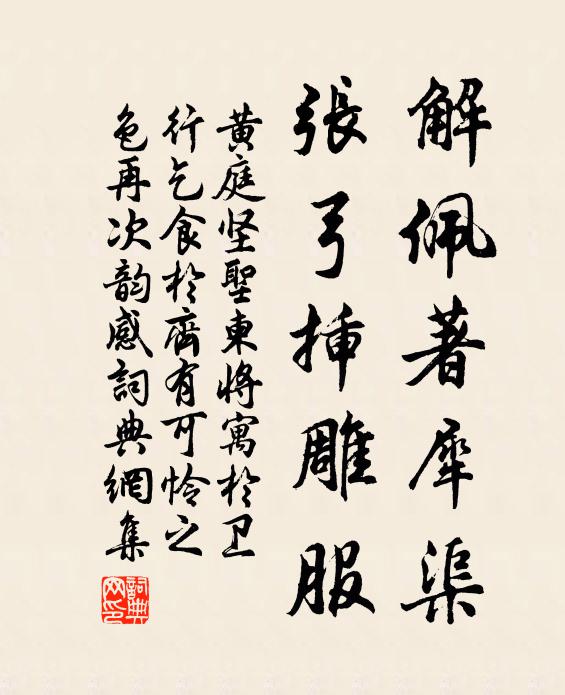 解佩著犀渠
張弓揷雕服
黄庭坚聖東将寓於卫
行乞食於齊有可怜之
色再次韵感詞典網集
詞典
网印